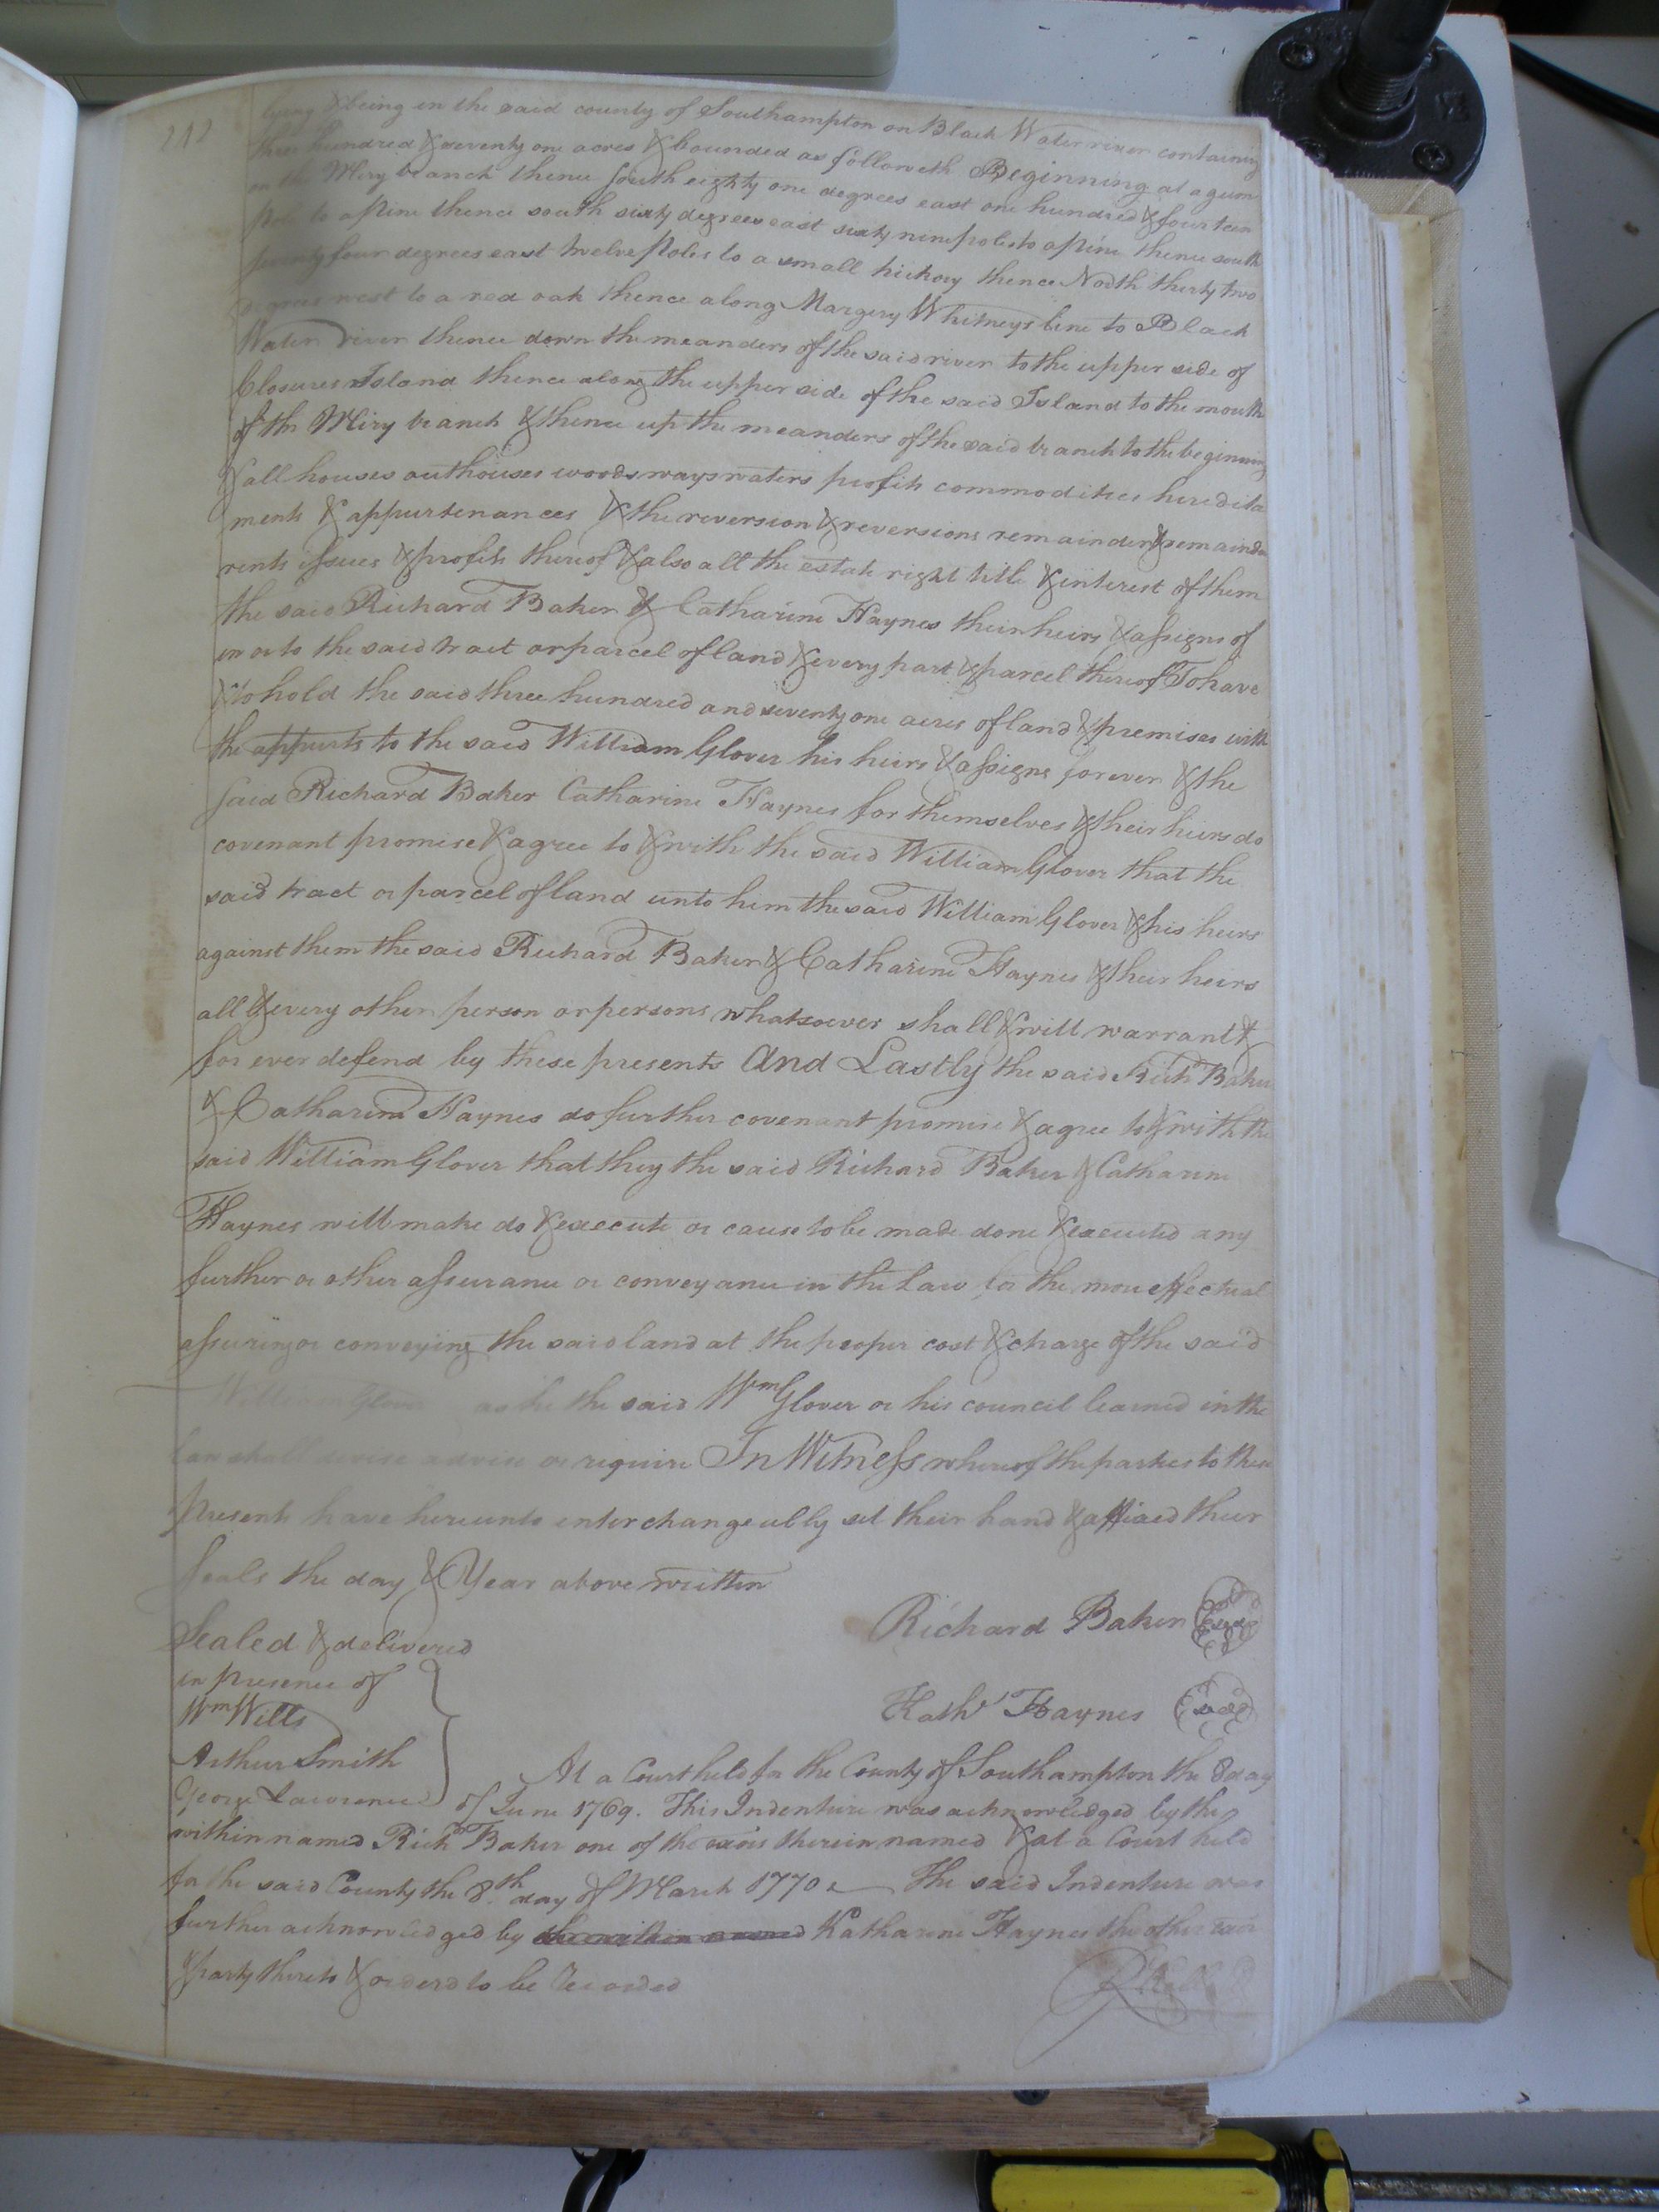 212
lying & being in the said county of Southampton on Black Water river containing
three hundred & seventy one acres & bounded as followeth Beginning at a gum
on the Miry branch thence South eighty one degrees east one hundred & fourteen
pole to a pine thence south sixty degrees east sixty nine poles to a pine thence south
seventy four degrees east twelve Poles to a small hickory thence North thirty two
degrees west to a red oak thence along Margery Whitneys line to Black
Water river thence down the meanders of the said river to the upper side of
Closures Island thence along the upper side of the said Island to the mouth
of the Miry branch & thence up the meanders of the said branch to the beginning
& all houses outhouses woods ways waters profits commodities heredita
ments & appurtenances & the reversion & reversions remainder & remainder
rents issues & profits thereof & also all the estate right title & interest of them
the said Richard Baker & Catharine Haynes their heirs & assigns of
in or to the said tract or parcel of land & every part & parcel thereof To have
& to hold the said three hundred and seventy one acres of land & premises with
the appurts to the said William Glover his heirs & assigns forever & the
said Richard Baker Catharine Haynes for themselves & their heirs do
covenant promise & agree to & with the said William Glover that the
said tract or parcel of land unto him the said William Glover & his heirs
against them the said Richard Baker & Catharine Haynes & their heirs
all & every other person or persons whatsoever shall & will warrant &
for ever defend by these presents And Lastly the said Richd Baker
& Catharine Haynes do further covenant promise & agree to & with the
said William Glover that they the said Richard Baker & Catharine
Haynes will make do & execute or cause to be made done & executed any
further or other assurance or conveyance in the Law for the more effectual
assuring or conveying the said land at the proper cost & charge of the said
William Glover as he the said Wm Glover or his council learned in the
law shall devise advise or require In Witness whereof the parties to these
Presents have hereunto interchangeably set their hand & affixed their
Seals the day & Year above written
Richard Baker Seal
Sealed & delivered
in presence of
Kath' Haynes Seal
Wm Wills
Arthur Smith
George Lawrence
At a Court held for the County of Southampton the 8 day
of June 1769. This Indenture was acknowledged by the
within named Richd Baker one of the exors therein named & at a Court held
for the said County the 8th day of March 1770 The said Indenture was
further acknowledged by the within named Katharine Haynes the other exor
& party thereto & orderd to be Recorded